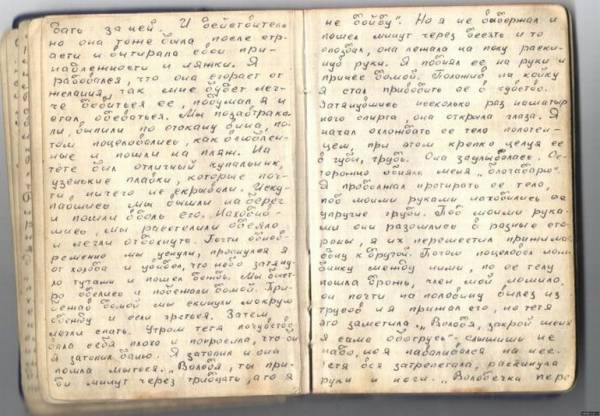 бать за ней. И действитель
но она тоже была, после стр
асти вытирала свои при-
надлежности и ляжки. Я
радовался, что она сгорает от
желания, так мне будет лег-
че добиться ее, подумал я и
стал одеваться. Мы позавтрака
ли, выпили по стакану вина, по-
том поцеловались, как влюблен-
ные и пошли на пляж. На
тёте был отличный купальник,
узенькие плавки, которые поч-
ти, ничего не скрывали. Иску-
павшись мы вышли на берег
и пошли вдоль его. Находив-
шись, мы расстелили одеяло
и легли отдохнуть. Почти однов-
ременно мы уснули, проснулся я
от холода и увидел, что небо затяну-
ло тучами и пошел дождь. Мы быст-
ро оделись и побежали домой. При-
бежав домой мы скинули мокрую
одежду и сели греться. Затем
легли спать. Утром тетя почувство
вала себя плохо и попросила, что бы
я затопил баню. Я затопил и она
пошла мыться. „Володя, ты при-
ди минут через тридцать, а то я
не дойду". Но я не выдержал и
пошел минут через десять и то
опоздал, она лежала на полу раски-
нув руки. Я поднял ее на руки и
принес домой. Положив на койку
я стал приводить ее в чувство.
Затянувшись несколько раз нашатыр
ного спирта, она открыла глаза. Я
начал охлождать ее тело полотен-
цем, при этом крепко целуя ее
в губы, грудь. Она заулыбалась. Ос-
торожно обняла меня „благодарю".
Я продолжал протирать ее тело,
под моими руками находились ее
упругие груди. Под моими рука-
ми они разошлись в разные сто-
роны, я их переместил прижимая
одну к другой. Потом поцеловал лож
бинку между ними, по ее телу
пошла дрожь, член мой ломило,
он почти на половину вылез из
трусов и я прижал его, но тетя
это заметила. „Володя, закрой меня
я сама обогрусь" – слышишь не
надо, но я навалился на нее.
Тетя вся затрепетала, раскинула
руки и ноги. „Володечка пере